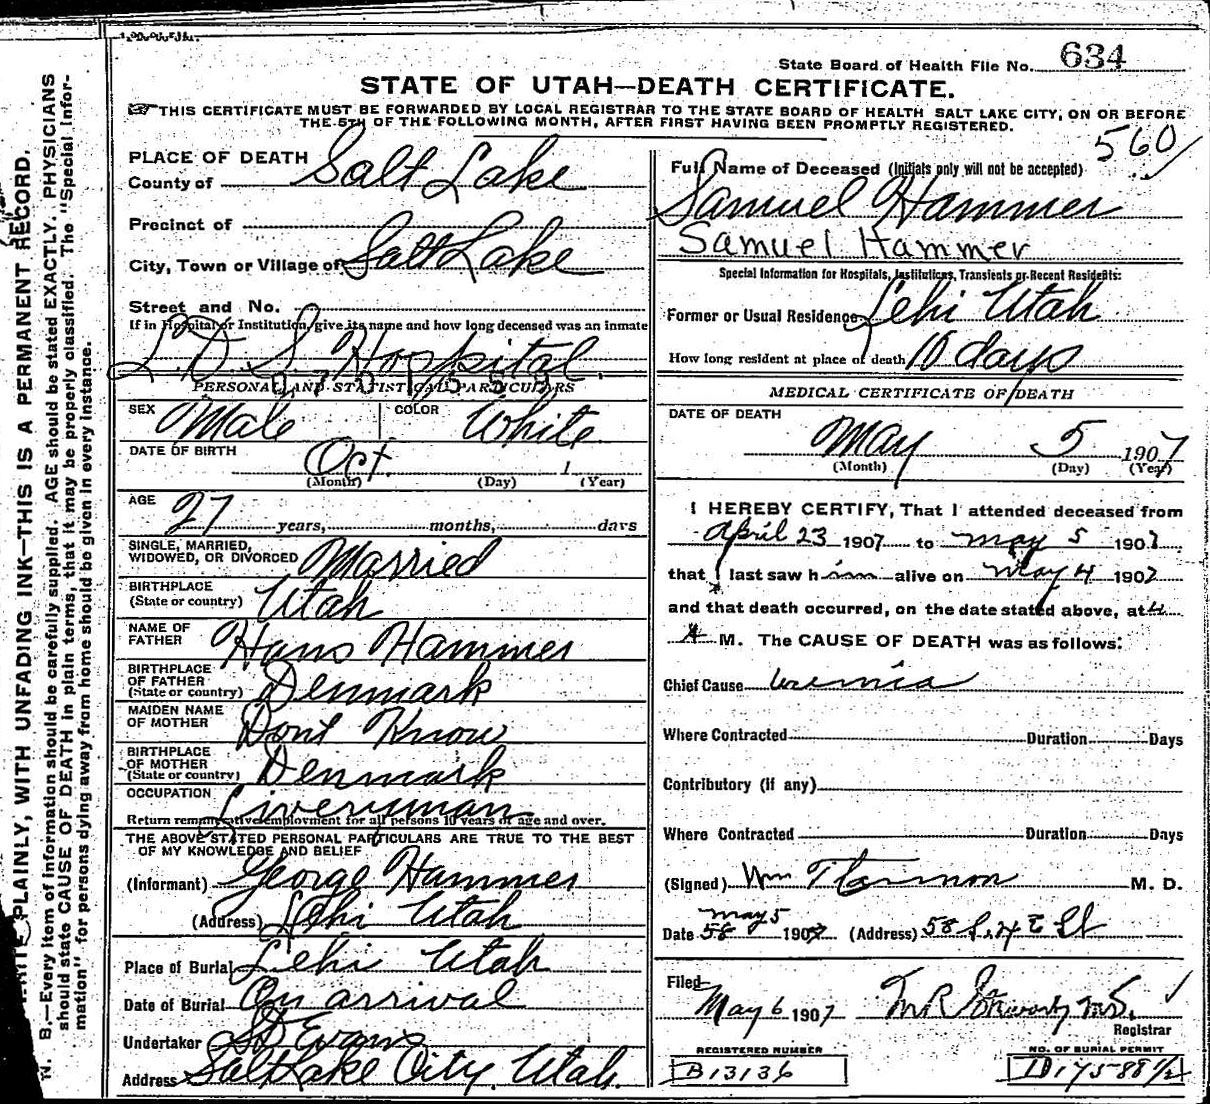 State Board of Health File No. 634
STATE OF UTAH—DEATH CERTIFICATE.
THIS CERTIFICATE MUST BE FORWARDED BY LOCAL REGISTRAR TO THE STATE BOARD OF HEALTH SALT LAKE CITY, ON OR BEFORE
THE 5TH OF THE FOLLOWING MONTH, AFTER FIRST HAVING BEEN PROMPTLY REGISTERED.
560
PLACE OF DEATH
County of Salt Lake
Precinct of
City, Town or Village of Salt Lake
Street and No.
If in Hospital or Institution, give its name and how long deceased was an inmate
L. D. S. Hospital.
PERSONAL AND STATISTICAL PARTICULARS
SEX Male COLOR White
DATE OF BIRTH Oct. 1
(Month) (Day) (Year)
AGE 27 years, months, days
SINGLE, MARRIED,
WIDOWED, OR DIVORCED Married
BIRTHPLACE
(State or country) Utah
NAME OF
FATHER Hans Hammer
BIRTHPLACE
OF FATHER
(State or country) Denmark
MAIDEN NAME
OF MOTHER Dont Know
BIRTHPLACE
OF MOTHER
(State or country) Denmark
OCCUPATION Liveryman
Return remunerative employment for all persons 10 years of age and over.
THE ABOVE STATED PERSONAL PARTICULARS ARE TRUE TO THE BEST
OF MY KNOWLEDGE AND BELIEF
(Informant) George Hammer
(Address) Lehi Utah
Place of Burial Lehi Utah
Date of Burial On arrival
Undertaker S D Evans
Address Salt Lake City, Utah.
Full Name of Deceased (Initials only will not be accepted)
Samuel Hammer
Samuel Hammer
Special Information for Hospitals, Institutions, Transients or Recent Residents:
Former or Usual Residence Lehi Utah
How long resident at place of death 10 days
MEDICAL CERTIFICATE OF DEATH
DATE OF DEATH
May 5 1907
(Month) (Day) (Year)
I HEREBY CERTIFY, That I attended deceased from
April 23 1907 to May 5 1907
that I last saw him alive on May 4 1907
and that death occurred, on the date stated above, at 4
A M. The CAUSE OF DEATH was as follows:
Chief Cause Uremia
Where Contracted Duration Days
Contributory (if any)
Where Contracted Duration Days
(Signed) Wm M. D.
May 5
Date 58 1907 (Address) 58 S. 4 E St
Filed
May 6 1907 M.D.
Registrar
REGISTERED NUMBER
B13136
NO. OF BURIAL PERMIT
WRITE PLAINLY, WITH UNFADING INK—THIS IS A PERMANENT RECORD.
N. B.—Every item of information should be carefully supplied. AGE should be stated EXACTLY. PHYSICIANS
should state CAUSE OF DEATH in plain terms, that it may be properly classified. The "Special Infor-
mation" for persons dying away from home should be given in every instance.